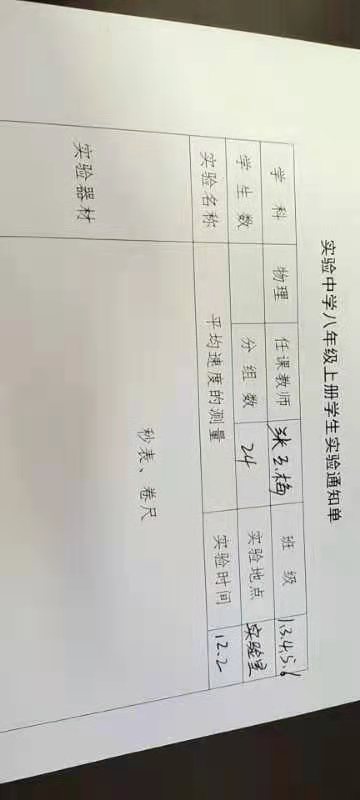 实验中学八年级上册学生实验通知单
学 科 物理 任课教师 班 级 1.3.4.5.6
学 生 数 分 组 数 24 实验地点 实验室
实验名称 平均速度的测量 实验时间 12.2
实验器材 秒表、卷尺